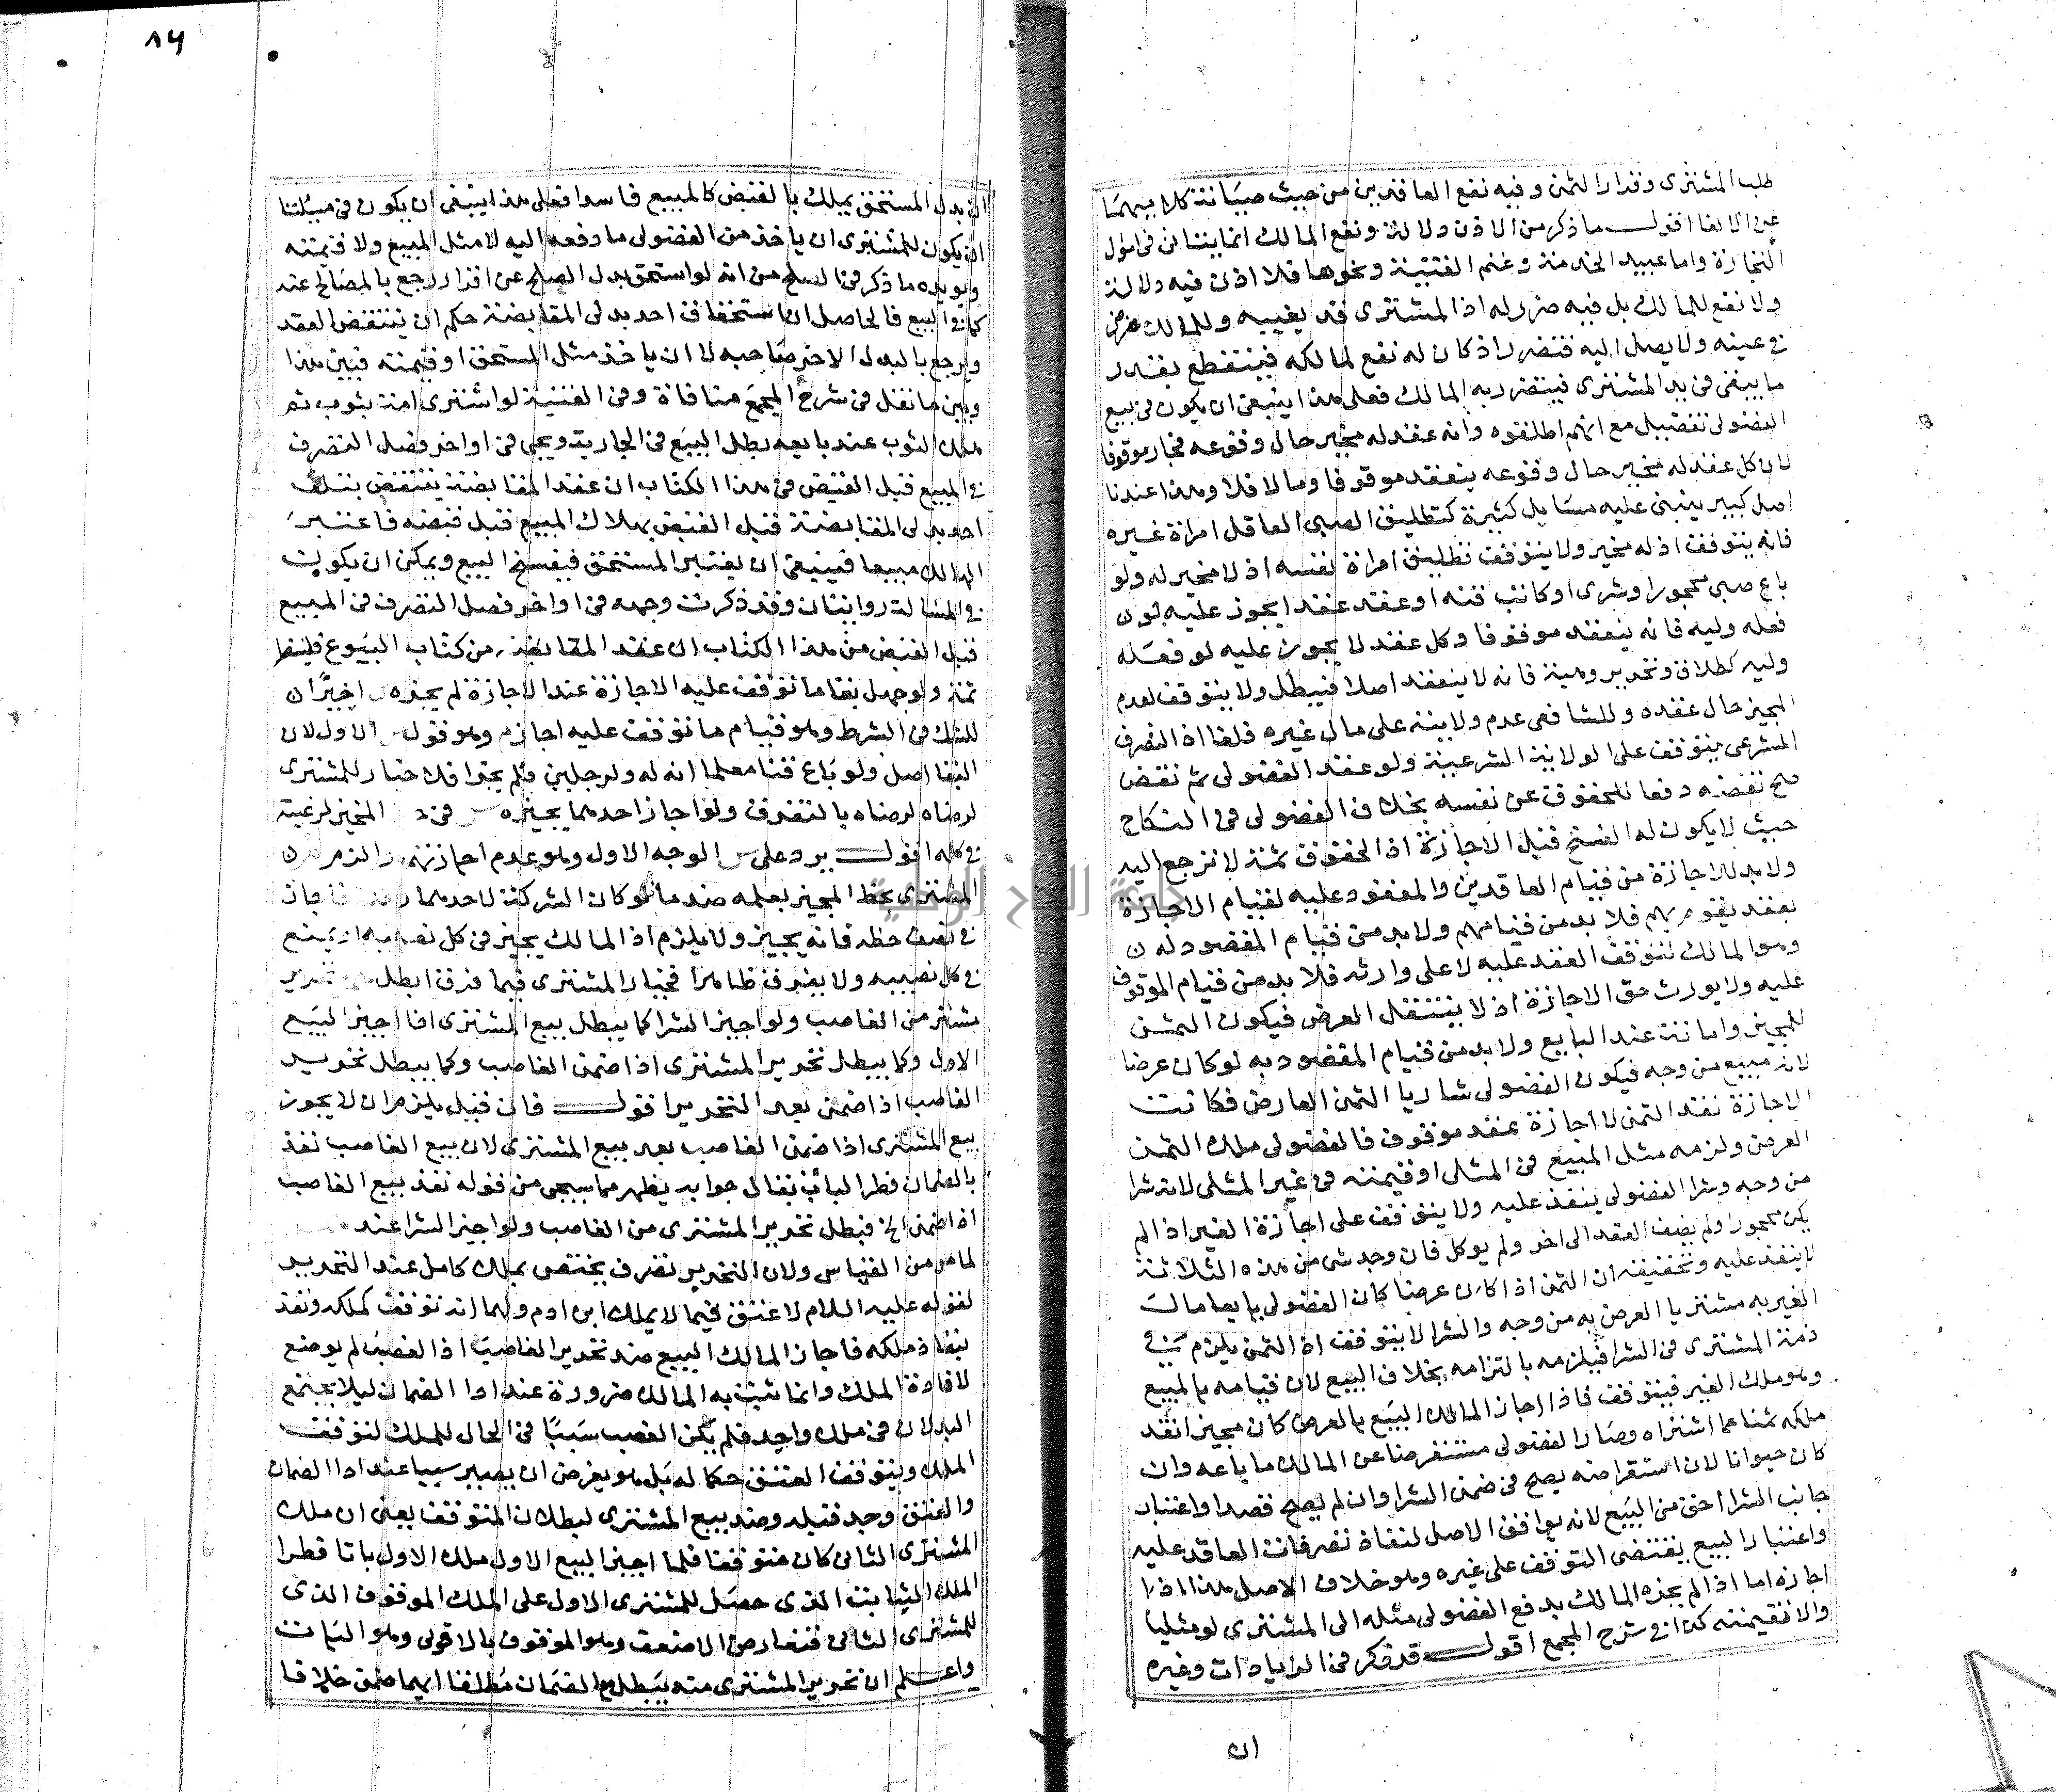 طلب المشترى وقدار الثمن وفيه نفع العاقدين من حيث صيانة كلامهما
عن الالغا اقول ما ذكر من الاذن دلالة ونفع المالك انما يتاتى فى اموال
التجارة واما عبيد الخدمة وغنم القنية ونحوها فلا اذن فيه دلالة
ولا نفع للمالك بل فيه ضرر له اذ المشترى قد يغيبه وللمالك غرض
فى عينه ولا يصل اليه فتضرر اذ كان له نفع لمالكه فينقطع بقدر
ما يبقى فى يد المشترى فيتضرر به المالك فعلى هذا ينبغى ان يكون فى بيع
الفضولى تفصيل مع انهم اطلقوه وانه عقد له مجيز حال وقوعه فجاز موقوفا
لان كل عقد له مجيز حال وقوعه ينعقد موقوفا وما لا فلا وهذا عندنا
اصل كبير يبنى عليه مسايل كثيرة كتطليق الصبى العاقل امراة غيره
فانه يتوقف اذ له مجيز ولا يتوقف تطليق امراة نفسه اذ لا مجيز له ولو
باع صبى محجور او شرى او كاتب قنه او عقد عقدا يجوز عليه لون
فعله وليه فانه ينعقد موقوفا وكل عقد لا يجوز عليه لو فعله
وليه كطلاق وتحرير وهبة فانه لا ينعقد اصلا فيبطل ولا يتوقف لعدم
المجيز حال عقده وللشافعى عدم ولايته على مال غيره فلغا اذ التصرف
الشرعى يتوقف على الولاية الشرعية ولو عقد الفضولى ثم نقض
صح نقضه دفعا للحقوق عن نفسه بخلاف الفضولى فى النكاح
حيث لا يكون له الفسخ قبل الاجازة اذ الحقوق ثمة لا ترجع اليه
ولا بد للاجازة من قيام العاقدين والمعقود عليه لقيام الاجازة
بعقد يقوم بهم فلا بد من قيامهم ولا بد من قيام المعقود له ن
وهو المالك لتوقف العقد عليه لا على وارثه فلا بد من قيام الموقوف
عليه ولا يورث حق الاجازة اذ لا ينتقل العرض فيكون الثمن
للمجيز وامانة عند البايع ولا بد من قيام المقصود به لو كان عرضا
لانه مبيع من وجه فيكون الفضولى شاريا الثمن العارض فكانت
الاجازة نقد الثمن لا اجازة عقد موقوف فالفضولى ملك الثمن
العرض ولزمه مثل المبيع فى المثلى او قيمته فى غير المثلى لانه شرا
من وجه وشرا الفضولى ينفذ عليه ولا يتوقف على اجازة الغير اذ الم
يكن محجورا ولم يضف العقد الى اخر ولم يوكل فان وجد شى من هذه الثلاثة
لا ينفذ عليه وتحقيقه ان الثمن اذا كان عرضا كان الفضولى بايعا مال
الغير به مشتريا العرض به من وجه والشرا لا يتوقف اذ الثمن يلزم فى
ذمة المشترى فى الشرا فيلزمه بالتزامه بخلاف البيع لان قيامه بالمبيع
وهو ملك الغير فيتوقف فاذا اجاز المالك البيع بالعرض كان مجيزا نقد
ملكه ثمنا عما اشتراه وصار الفضولى مستقرضا عن المالك ما باعه وان
كان حيوانا لان استقراضه يصح فى ضمن الشرا وان لم يصح قصدا واعتبار
جانب الشرا احق من البيع لانه يوافق الاصل لنفاذ تصرفات العاقد عليه
واعتبار البيع يقتضى التوقف على غيره وهو خلاف الاصل هذا اذا
اجازه اما اذا لم يجزه المالك يدفع الفضولى مثله الى المشترى لو مثليا
والا فقيمته كذا فى شرح المجمع اقول قد ذكر فى الزيادات وغيره
ان
٨٦
ان بدل المستحق يملك بالقبض كالمبيع فاسدا فعلى هذا ينبغى ان يكون فى مسئلتنا
ان يكون للمشترى ان ياخذ من الفضولى ما دفعه اليه لا مثل المبيع ولا قيمته
ويويده ما ذكر فى الصلح من انه لو استحق بدل الصلح عن اقرار رجع بالمصالح عنه
كما فى البيع فالحاصل ان استحقاق احد بدلى المقايضة حكم ان ينتقض العقد
ويرجع بالبدل الاخر صاحبه لا ان ياخذ مثل المستحق او قيمته فبين هذا
وبين ما نقل فى شرح المجمع منافاة وفى القنية لو اشترى امة بثوب ثم
هلك الثوب عند بايعه بطل البيع فى الجارية ويجى فى اواخر فصل التصرف
فى المبيع قبل القبض فى هذا الكتاب ان عقد المقايضة ينتقض بتلف
احد بدلى المقايضة قبل القبض بهلاك المبيع قبل قبضه فاعتبر
الهالك مبيعا فينبغى ان يعتبر المستحق فيفسخ البيع ويمكن ان يكون
فى المسالة روايتان وقد ذكرت وجهه فى اواخر فصل التصرف فى المبيع
قبل القبض من هذا الكتاب ان عقد المقايضة من كتاب البيوع فلينظر
ثمة ولو جهل بقا ما توقف عليه الاجازة عند الاجازة لم يجزه اخيرا ن
للشك فى الشرط وهو قيام ما توقف عليه اجازه وهو قول الاول لان
البقا اصل ولو باع قنا معلما انه له ولرجلين فلم يجزا فلا خيار للمشترى
لرضاه لرضاه بالتفرق ولو اجاز احدهما يجيزه س فى المخير لرغبته
فى كله اقول يرد على س الوجه الاول وهو عدم اجازته
المشترى بحظ المجيز بعلمه ضد ما لو كان الشركة لاحدهما فاجاز
فى نصف حظه فانه يجيز ولا يلزم اذ المالك يجيز فى كل نصيبه او يمنع
فى كل نصيبه ولا يفرق ظاهرا فخيار المشترى فيما فرق ابطل تحرير
مشتر من الغاصب ولو اجيز الشرا كما يبطل بيع المشترى اذا اجيز البيع
الاول وكما يبطل تحرير المشترى اذا ضمن الغاصب وكما يبطل تحرير
الغاصب اذا ضمن بعد التحرير اقول فان قيل يلزم ان لا يجوز
بيع المشترى اذا ضمن الغاصب بعد بيع المشترى لان بيع الغاصب نفذ
بالضمان فطرا البات نقال جوابه يظهر مما سيجى من قوله نفذ بيع الغاصب
اذا ضمن الخ فبطل تحرير المشترى من الغاصب ولو اجيز الشرا عند
لما هو من القياس ولان التحرير تصرف يختص بملك كامل عند التحرير
لقوله عليه السلام لا عتق فيما لا يملك ابن ادم ولهما انه توقف كملكه ونفذ
بنفاذ ملكه فاجاز المالك البيع ضد تحرير الغاصب اذ الغصب لم يوضع
لافادة الملك وانما يثبت به المالك ضرورة عند ادا الضمان ليلا يجتمع
البدلان فى ملك واحد فلم يكن الغصب سببا فى الحال للملك لتوقف
الملك ويتوقف العتق حكما له بل هو يعرض ان يصير سببا عند ادا الضمان
والعتق وجد قبله وضد بيع المشترى لبطلان المتوقف يعنى ان ملك
المشترى الثانى كان متوقفا فلما اجيز البيع الاول ملك الاول باتا فطرا
الملك الثابت الذى حصل للمشترى الاول على الملك الموقوف الذى
للمشترى الثانى فتعارض الاضعف وهو الموقوف بالاقوى وهو البات
واعلم ان تحرير المشترى منه يبطل مع الضمان مطلقا ايهما ضمن خلافا